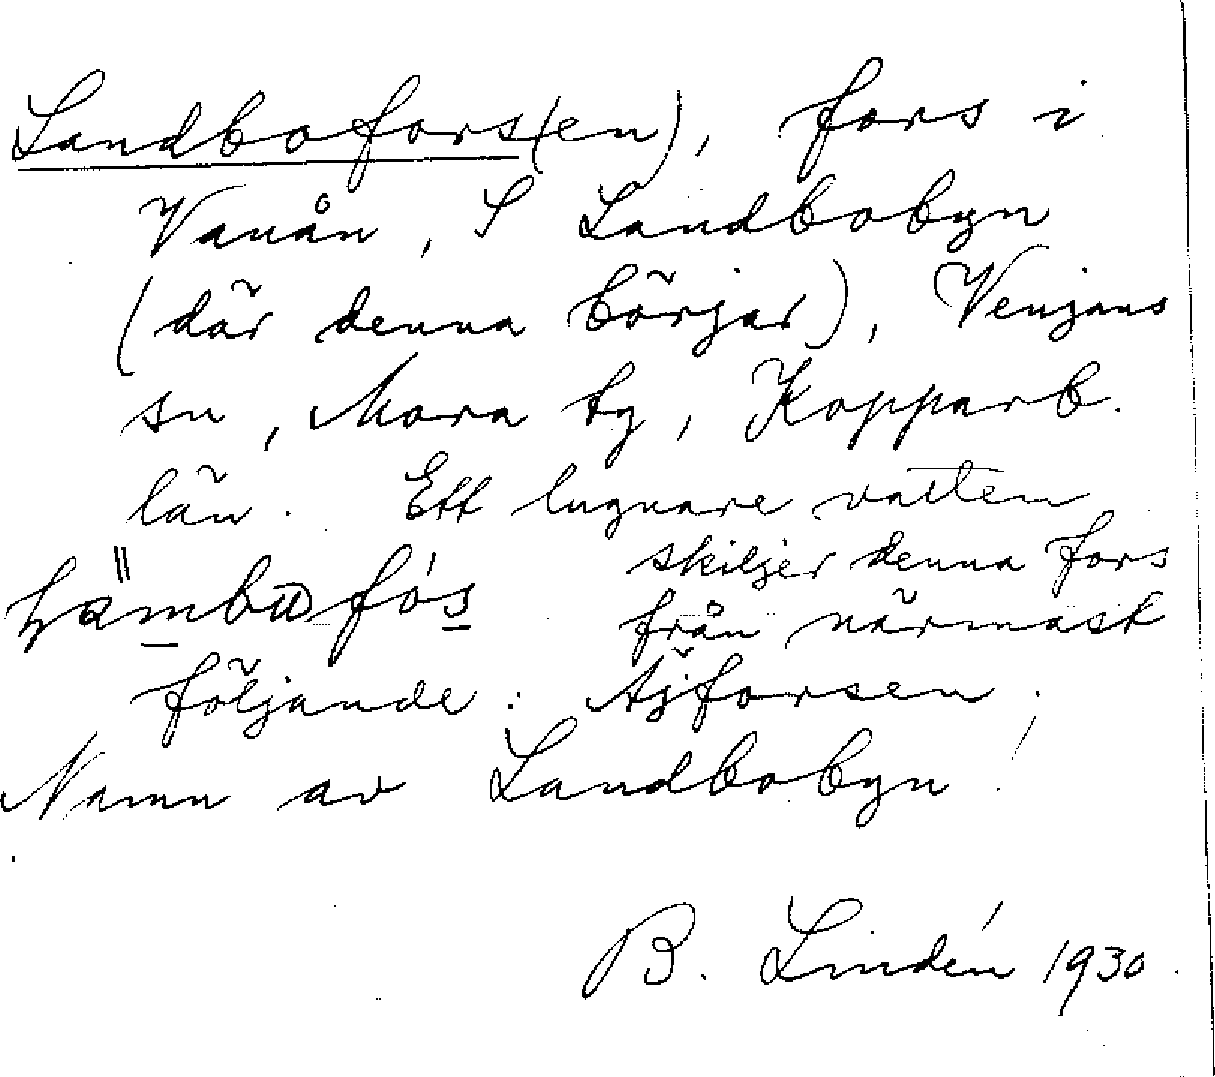 Landbofors(en), fors i
Vanån, S Landbobyn
(där denna börjar), Venjans
sn, Mora tg, Kopparb.
län. Ett lugnare vatten
skiljer denna fors
från närmast
följande: Äjforsen.
Namn av Landbobyn!
B. Lindén 1930.